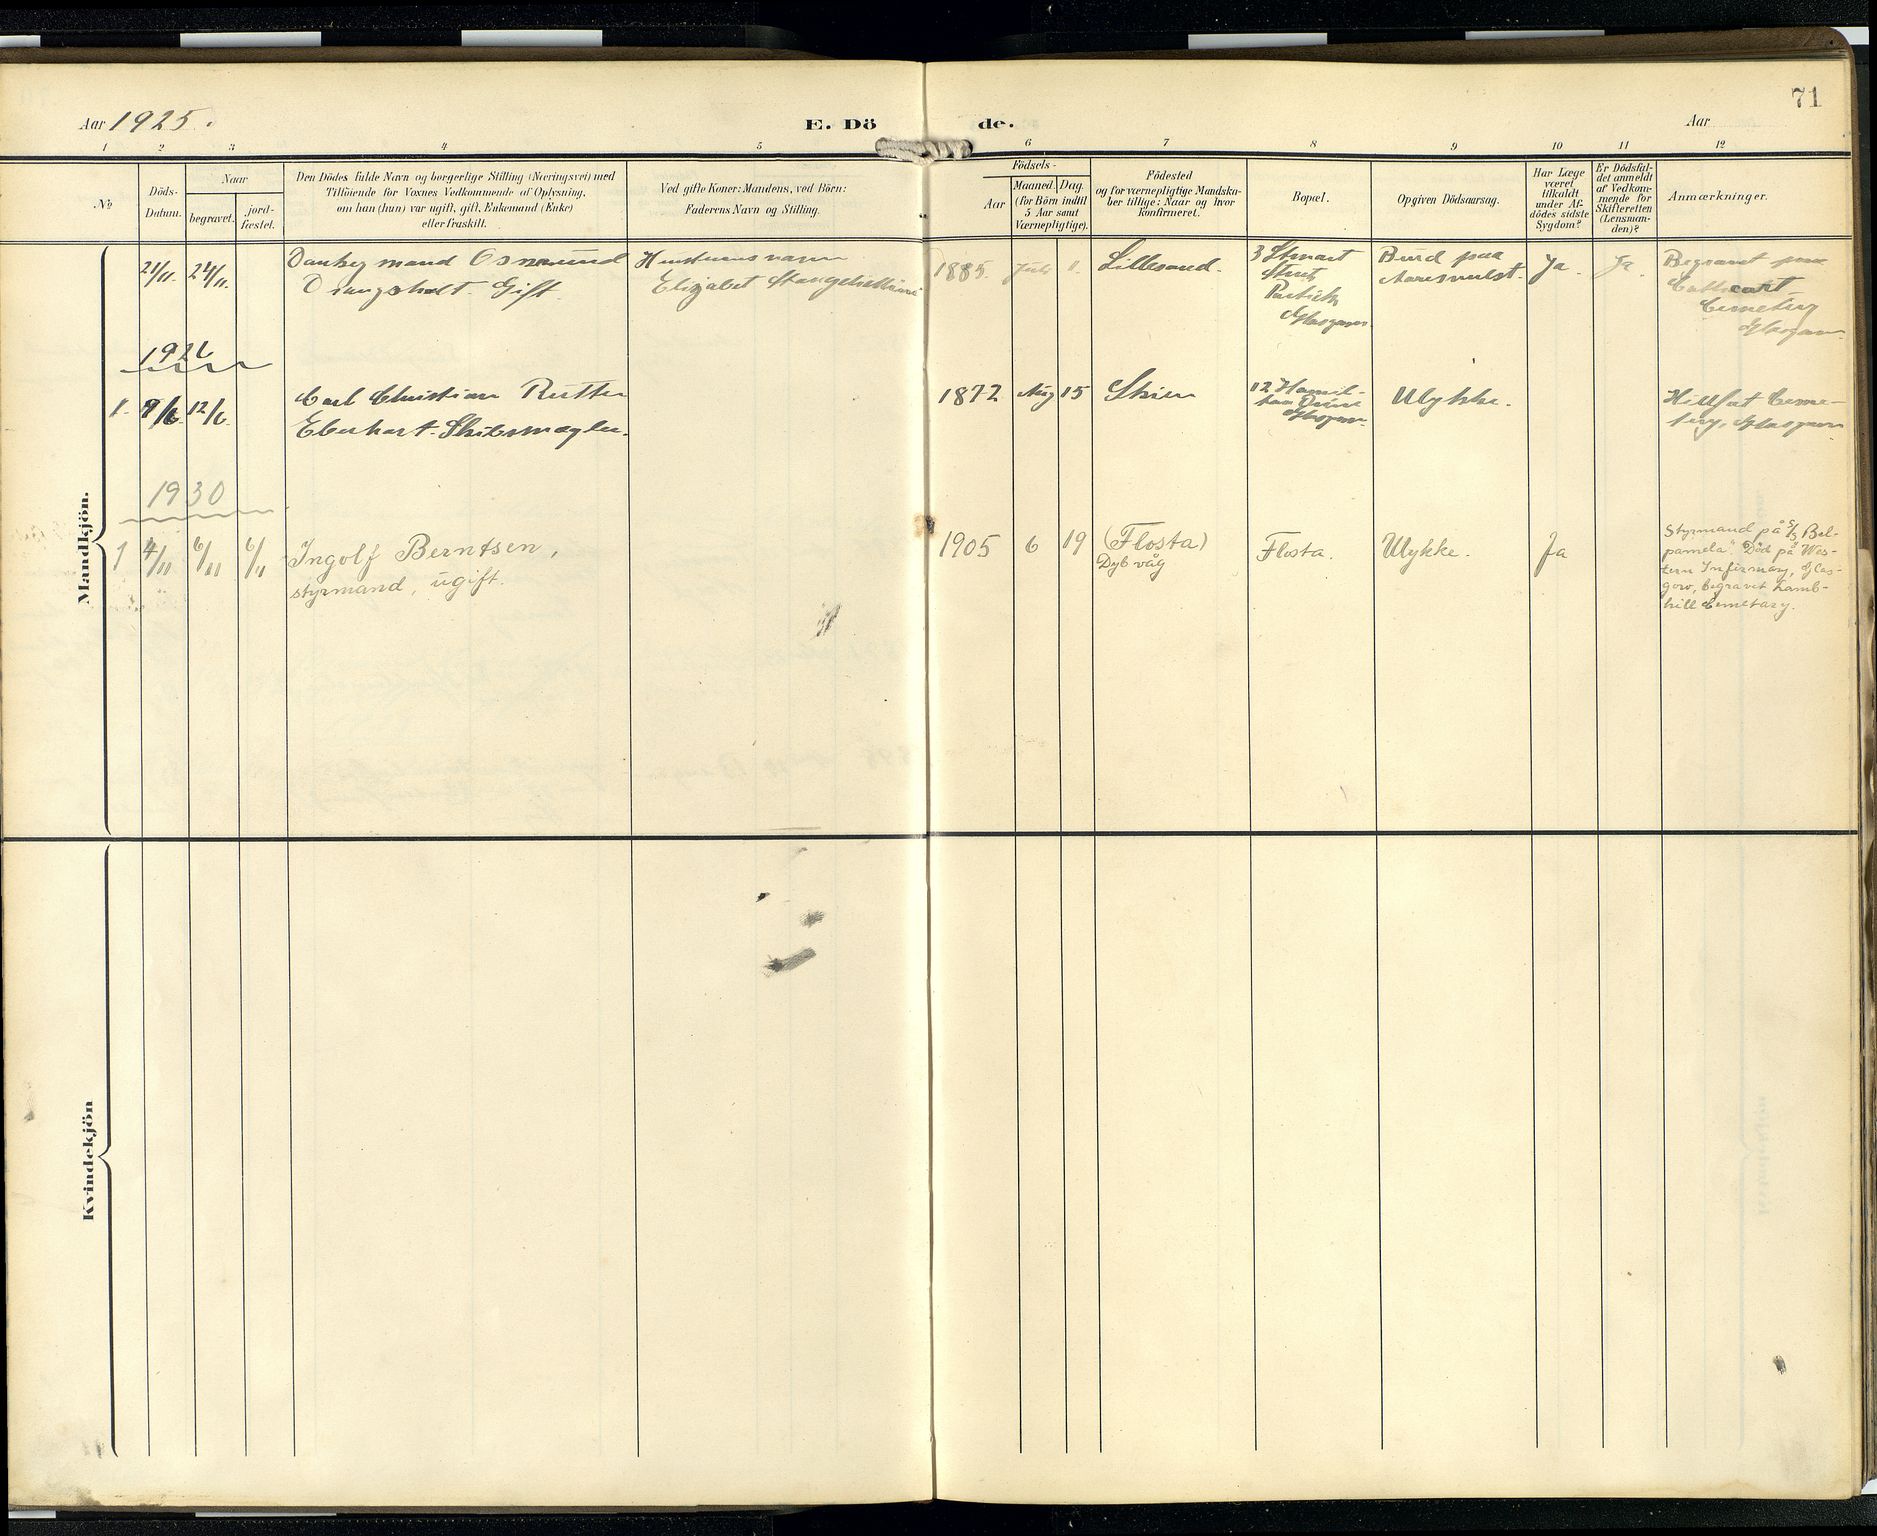 71
Aar 1925.
E. Dö
de.
Aar
1 2 3 4 5 6 7 8 9 10 11 12
№
Döds-
Datum.
Naar
begravet.
jord-
fæstet.
Den Dödes fulde Navn og borgerlige Stilling (Næringsvei) med
Tilföiende for Voxnes Vedkommende af Oplysning,
om han (hun) var ugift, gift, Enkemand (Enke)
eller fraskilt.
Ved gifte Koner: Mandens, ved Börn:
Faderens Navn og Stilling.
Födsels-
Aar
Maaned. Dag.
(for Börn indtil
5 Aar samt
Værnepligtige).
Födested
og for værnepligtige Mandska-
ber tillige: Naar og hvor
konfirmeret.
Bopæl.
Opgiven Dödsaarsag.
Har Læge
været
tilkaldt
under Af-
dödes sidste
Sygdom?
Er Dödsfal-
det anmeldt
af Vedkom-
mende for
Skifteretten
(Lensman-
den)?
Anmærkninger.
Mandkjön.
21/11. 24/11. Osmund
Gift. Hustruens navn
Elizabet
1885. Juli 11. Lillesand.
3 Stewart
Street
Partick
Glasgow.
Brud paa
Ja. Ja.
Begravet paa
Cathcart
Cemetery
Glasgow.
1926
1. 9/6. 12/6. Carl Christian Rutter
Eberhart. Skibsmægler.
1872 Aug 15 Skien
12 Hamil-
ton Drive
Glasgow.
Ulykke.
Ceme-
tery, Glasgow
1930
1 4/11 6/11 6/11 Ingolf Berntsen,
styrmand, ugift.
1905 6 19 (Flosta)
Dybvåg
Flosta. Ulykke. Ja
Styrmand på S/S "Bel-
pamela". Död på "Wes-
tern Infirmary, Glas-
gow, begravet Lamb-
hill Cemetary.
Kvindekjön